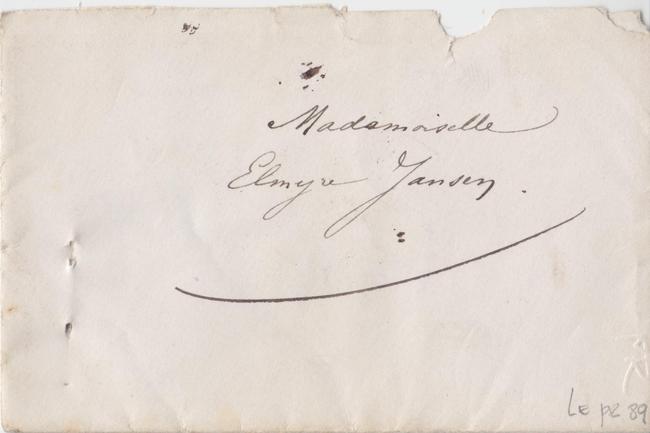 Mademoiselle
Elmyre Jansen.
Le pz 89